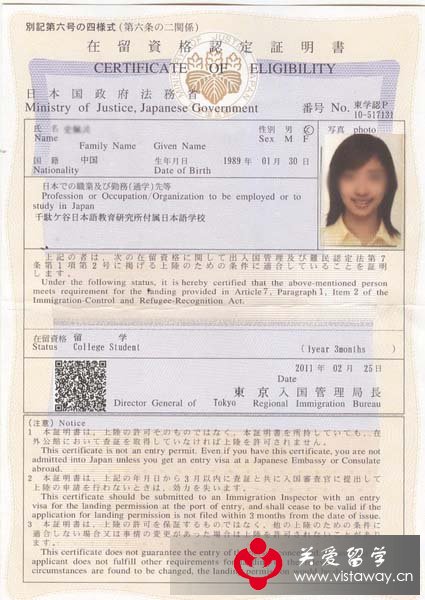 別記第六号の四様式(第六条の二関係)
在留資格認定証明書
CERTIFICATE OF ELIGIBILITY
日本国政府法務省
Ministry of Justice, Japanese Government
番号 No. 東学認P
10-517131
氏名
Name
Family Name Given Name
性別 男 女
Sex M F
写真 photo
国籍 中国
Nationality
生年月日 1989 年 01 月 30 日
Date of Birth
日本での職業及び勤務(通学)先等
Profession or Occupation/Organization to be employed or to
study in Japan
千駄ケ谷日本語教育研究所付属日本語学校
上記の者は、次の在留資格に関して出入国管理及び難民認定法第7
条第1項第2号に掲げる上陸のための条件に適合していることを証明
します。
Under the following status, it is hereby certified that the above-mentioned person
meets requirement for the landing provided in Article 7, Paragraph 1, Item 2 of the
Immigration-Control and Refugee-Recognition Act.
在留資格 留学
Status College Student
(1year 3months )
2011 年 02 月 25 日
Date
東京入国管理局長
Director General of Tokyo Regional Immigration Bureau
(注意) Notice
1 本証明書は、上陸の許可そのものではなく、本証明書を所持していても、在
外公館において査証を取得していなければ上陸を許可されません。
This certificate is not an entry permit. Even if you have this certificate, you are not
admitted into Japan unless you get an entry visa at a Japanese Embassy or Consulate
abroad.
2 本証明書は、上記の年月日から3月以内に査証と共に入国審査官に提出して
上陸の申請を行わないときは、効力を失います。
This certificate should be submitted to an Immigration Inspector with an entry
visa for the landing permission at the port of entry, and shall cease to be valid if the
application for landing permission is not filed within 3 months from the date of issue.
3 本証明書は、上陸の許可を保証するものではなく、他の上陸のための条件に
適合しない場合又は事情の変更があった場合は上陸を許可されないことがあ
ります。
This certificate does not guarantee the entry of the
applicant does not fulfill other requirements for
circumstances are found to be changed, the landing
关爱留学
www.vistaway.cn